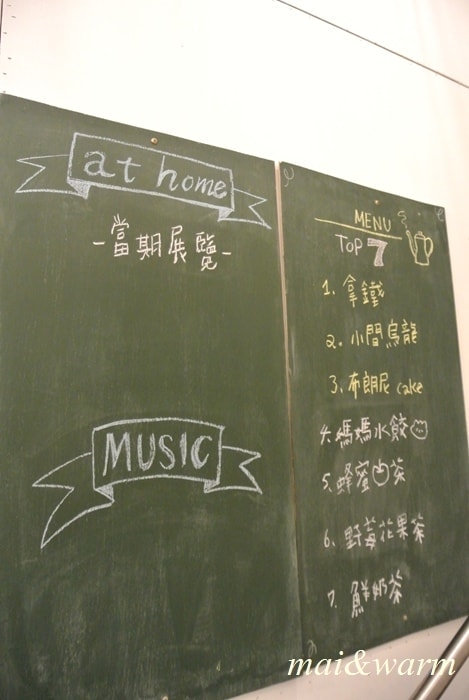 at home
-當期展覽-
MUSIC
MENU
TOP 7
1. 拿鐵
2. 小間烏龍
3. 布朗尼 cake
4. 媽媽水餃
5. 蜂蜜卤茶
6. 野莓花果茶
7. 鮮奶茶
mai&warm